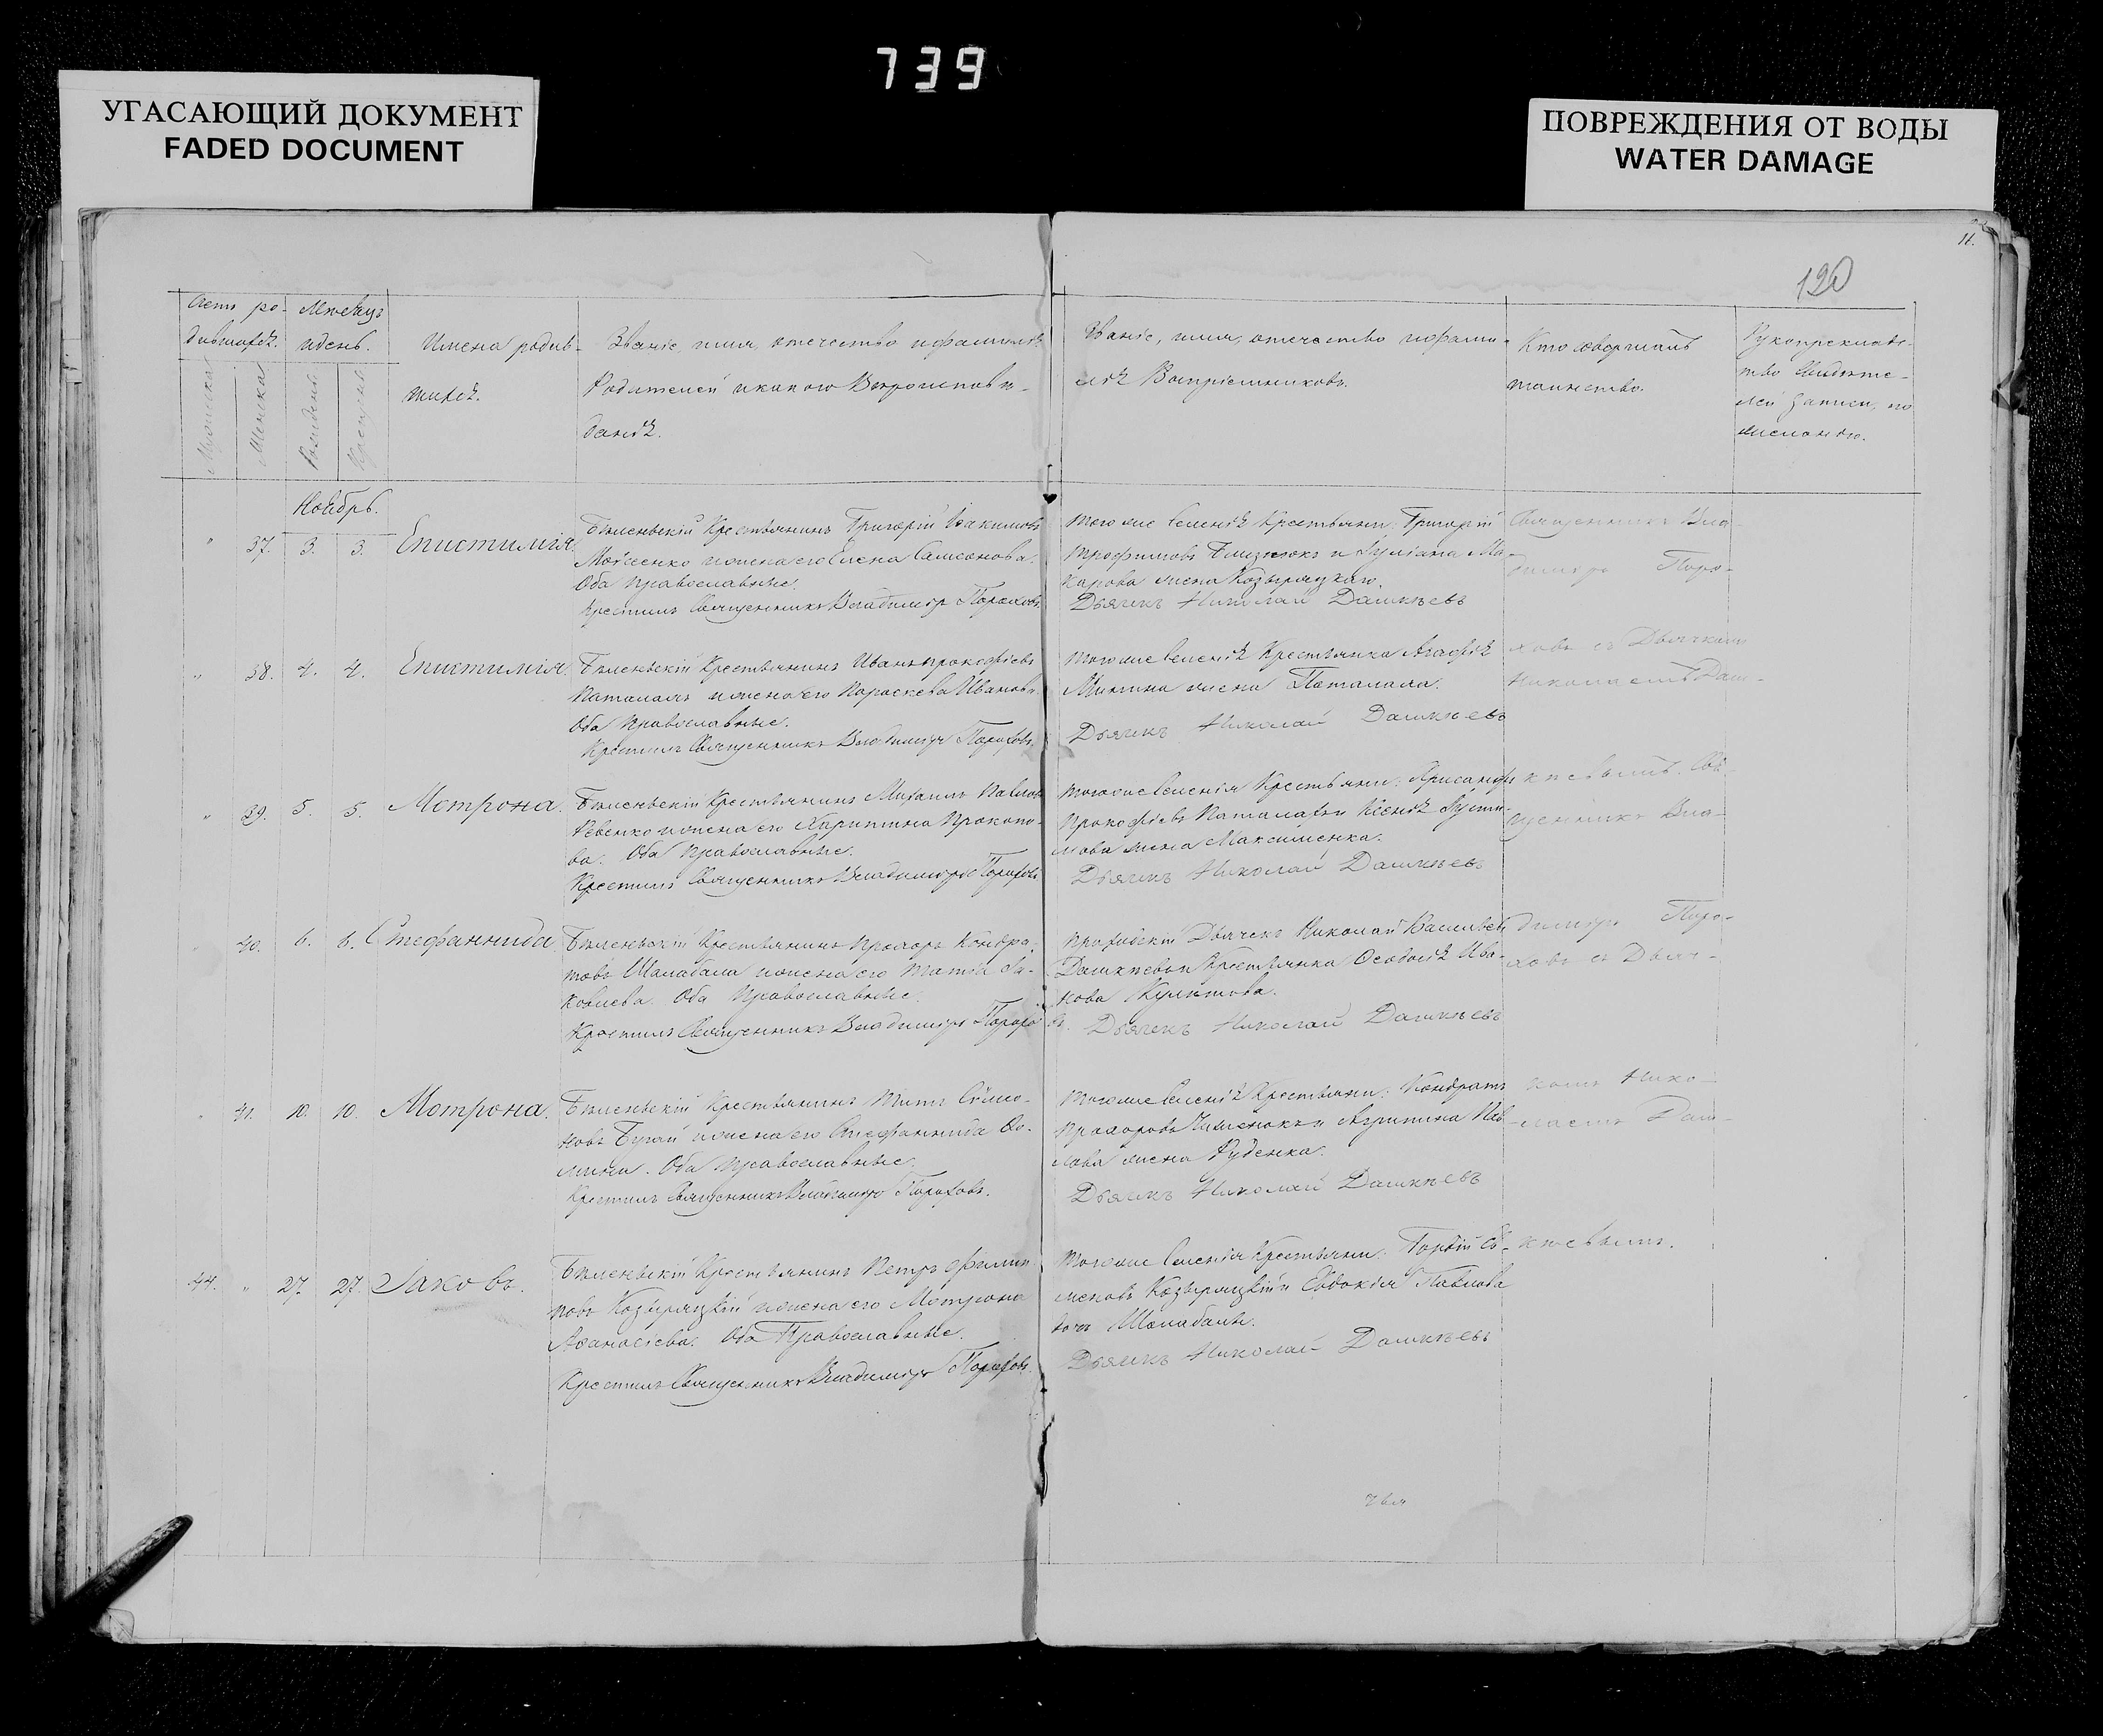 739
УГАСАЮЩИЙ ДОКУМЕНТ
FADED DOCUMENT
ПОВРЕЖДЕНИЯ ОТ ВОДЫ
WATER DAMAGE
11.
120
Счетъ ро-
дившихся.
Мужеска
Женска
Мѣсяцъ
и день.
Рожденія
Крещенія
Имена родив-
шихся.
Званіе, имя, отечество и фамилія
Родителей и какого Вѣроисповѣ-
данія.
Званіе, имя, отечество и фами-
лія Воспріемниковъ.
Кто совершалъ
таинство.
Рукоприклад-
ство Свидѣте-
лей записи, по
желанію.
Ноябрь.
" 37. 3. 3. Епистимія.
Крестьянинъ Григорій
Моисеенко и жена его Елена Самсонова.
Оба Православные.
Крестилъ Священникъ Владиміръ Пороховъ
Того же Селенія Крестьяне: Григорій
Трофимовъ Близнюкъ и Іуліана Ма-
карова жена Козырацкаго.
Дьячекъ Николай Дашкѣевъ
Священникъ Вла-
диміръ Поро-
" 38. 4. 4. Епистимія.
Крестьянинъ Иванъ Прокофіевъ
Паталахъ и жена его Параскева Иванова.
Оба Православные.
Крестилъ Священникъ Владиміръ Пороховъ
Того же Селенія Крестьянка Агафія
Минина жена Паталаха.
Дьячекъ Николай Дашкѣевъ
ховъ съ Дьячкомъ
Николаемъ Даш-
" 39. 5. 5. Мотрона.
Крестьянинъ Михаилъ Павловъ
Ревенко и жена его Харитина Прокопо-
ва. Оба Православные.
Крестилъ Священникъ Владиміръ Пороховъ
Того же Селенія Крестьяне:
Прокофіевъ Паталахъ и Ксенія Іусти-
нова жена Максименка.
Дьячекъ Николай Дашкѣевъ
кѣевымъ. Свя-
щенникъ Вла-
40. 6. 6. Стефаннида
Крестьянинъ Прохоръ Кондра-
товъ Шалабала и жена его Татія Іа-
ковлева. Оба Православные.
Крестилъ Священникъ Владиміръ Порохо
въ.
Приходскій Дьячекъ Николай Васильевъ
Дашкѣевъ и Крестьянка Ѳеодосія Ива-
нова
Дьячекъ Николай Дашкѣевъ
диміръ Поро-
ховъ съ Дьяч-
41. 10. 10. Мотрона.
Крестьянинъ Титъ Симо-
новъ Бугай и жена его Стефаннида Ѳо-
мина. Оба Православные.
Крестилъ Священникъ Владиміръ Пороховъ.
Того же Селенія Крестьяне: Кондратъ
Прохоровъ и Агрипина Пав-
лова жена Руденка.
Дьячекъ Николай Дашкѣевъ
комъ Нико-
лаемъ Даш-
44. " 27. 27. Іаковъ.
Крестьянинъ Петръ Филип-
повъ Козырацкій и жена его Мотрона
Аѳанасіева. Оба Православные.
Крестилъ Священникъ Владиміръ Пороховъ.
Того же Селенія Крестьяне: Гордій Се-
меновъ Козырацкій и Евдокія Павлова
дочь Шалабалы.
Дьячекъ Николай Дашкѣевъ
кѣевымъ.